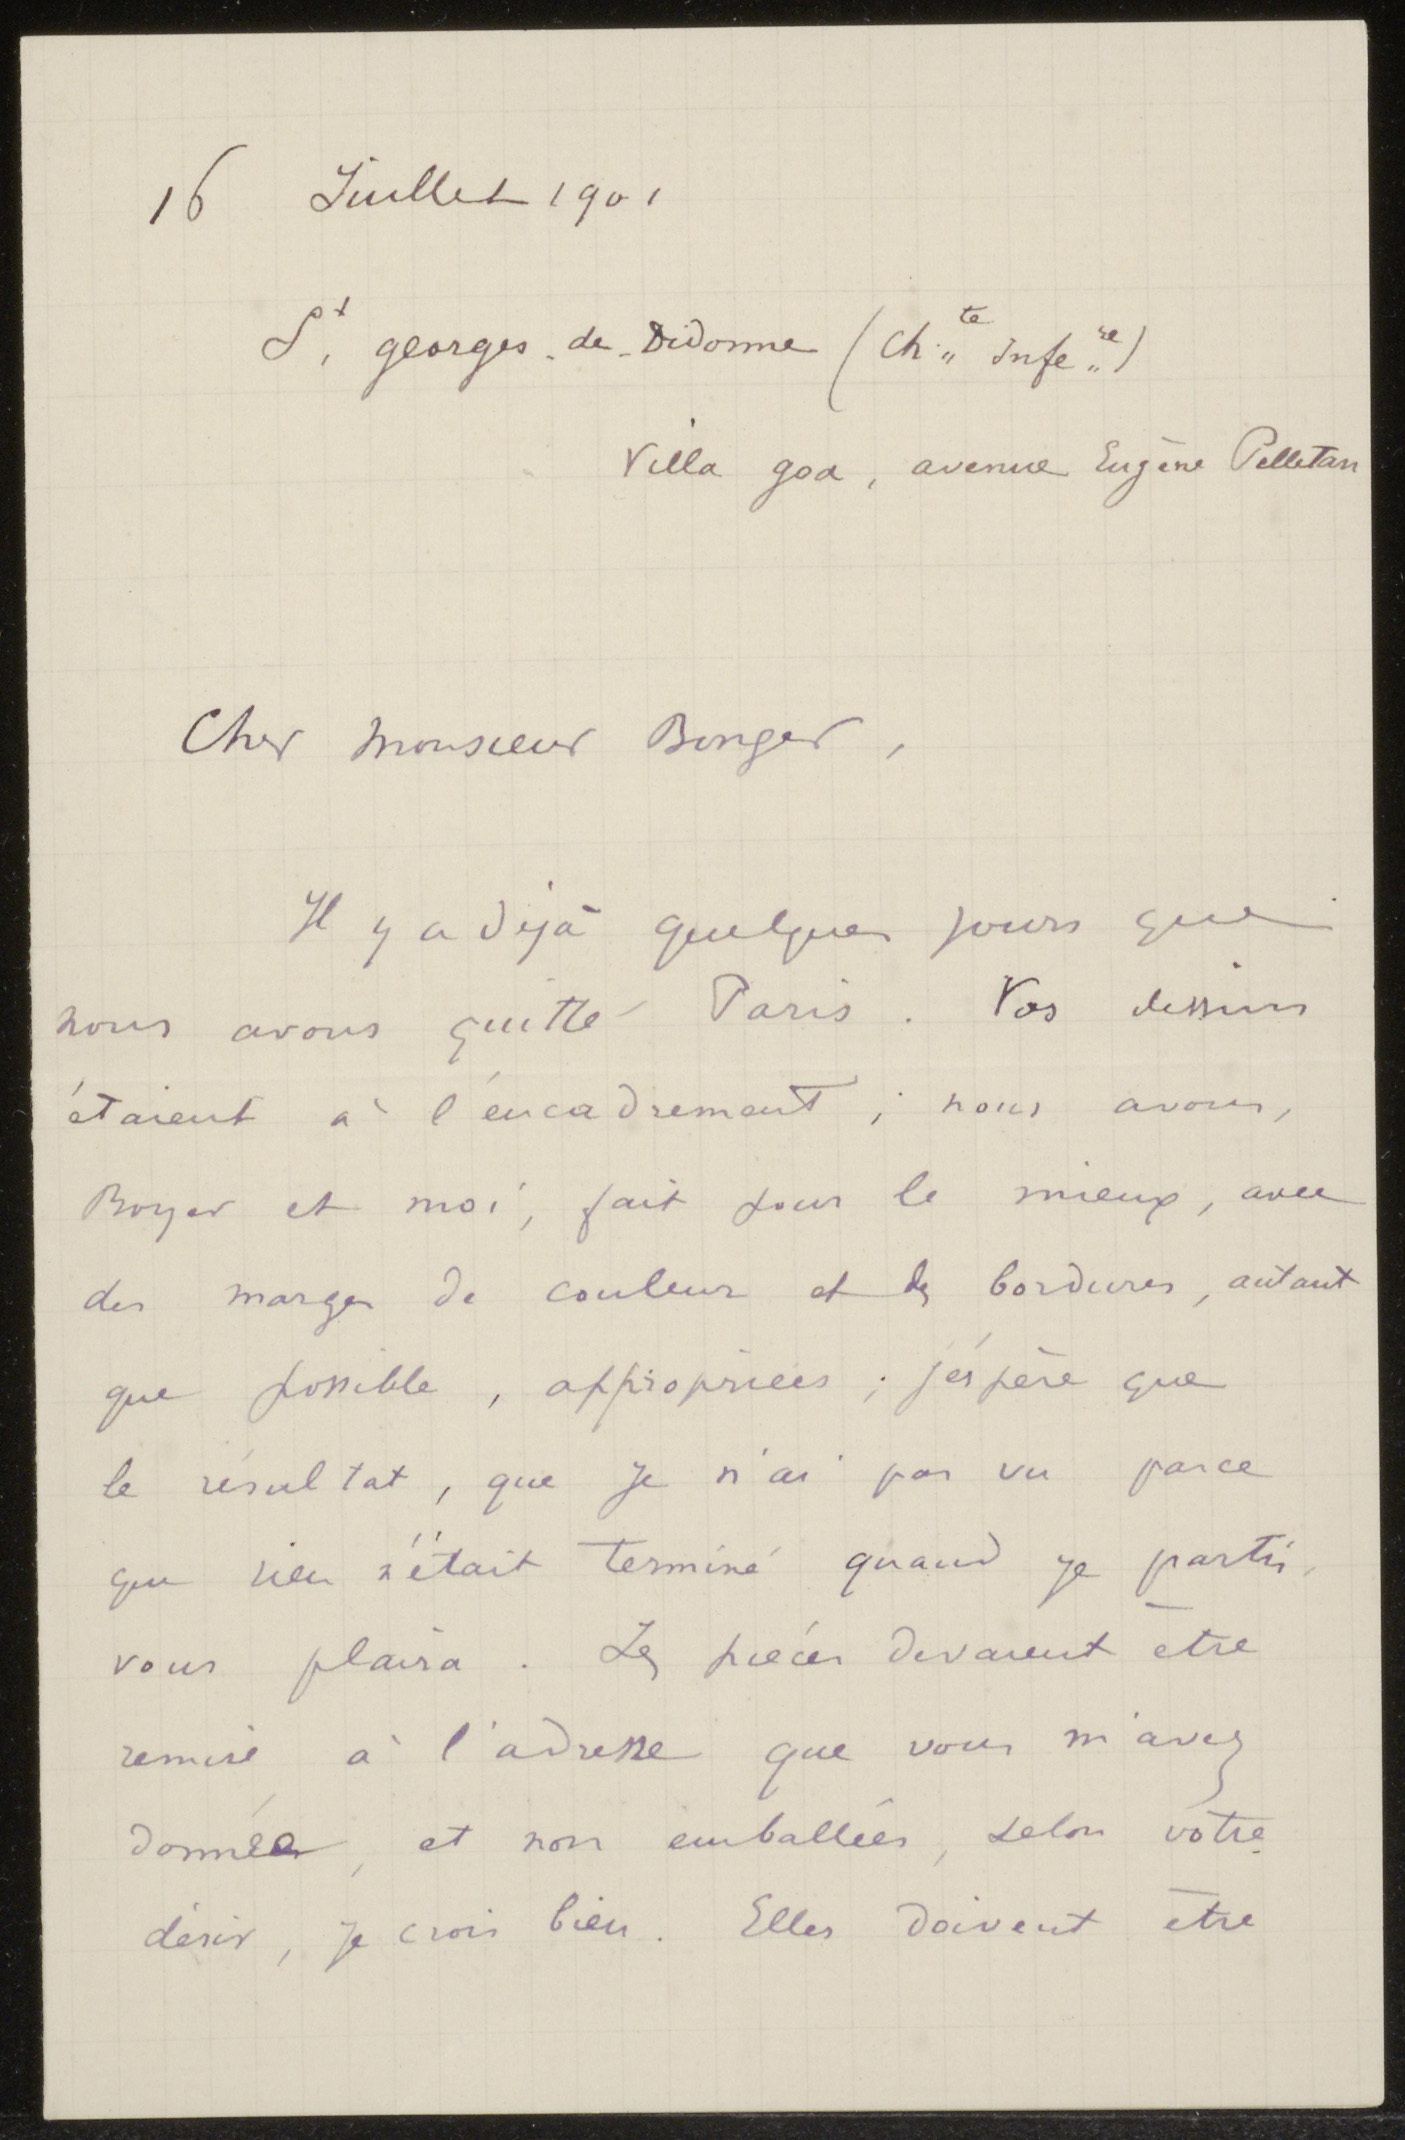 16 Juillet 1901
St, georges-de-Didonne (Ch,,te Infe,,re)
Villa goa, avenue Eugène Pelletan
Cher Monsieur Bonger,
Il y a déjà quelques jours que
nous avons quitté Paris. Vos dessins
étaient à l'encadrement ; nous avons,
Boyer et moi, fait pour le mieux, avec
des marges de couleur et des bordures, autant
que possible, appropriées ; j'éspère que
le résultat, que je n'ai pas vu parce
que rien n'était terminé quand je partis,
vous plaira. Les pièces devaient être
remise à l'adresse que vous m'avez
donnée, et non emballées, selon vôtre
désir, je crois bien. Elles doivent être